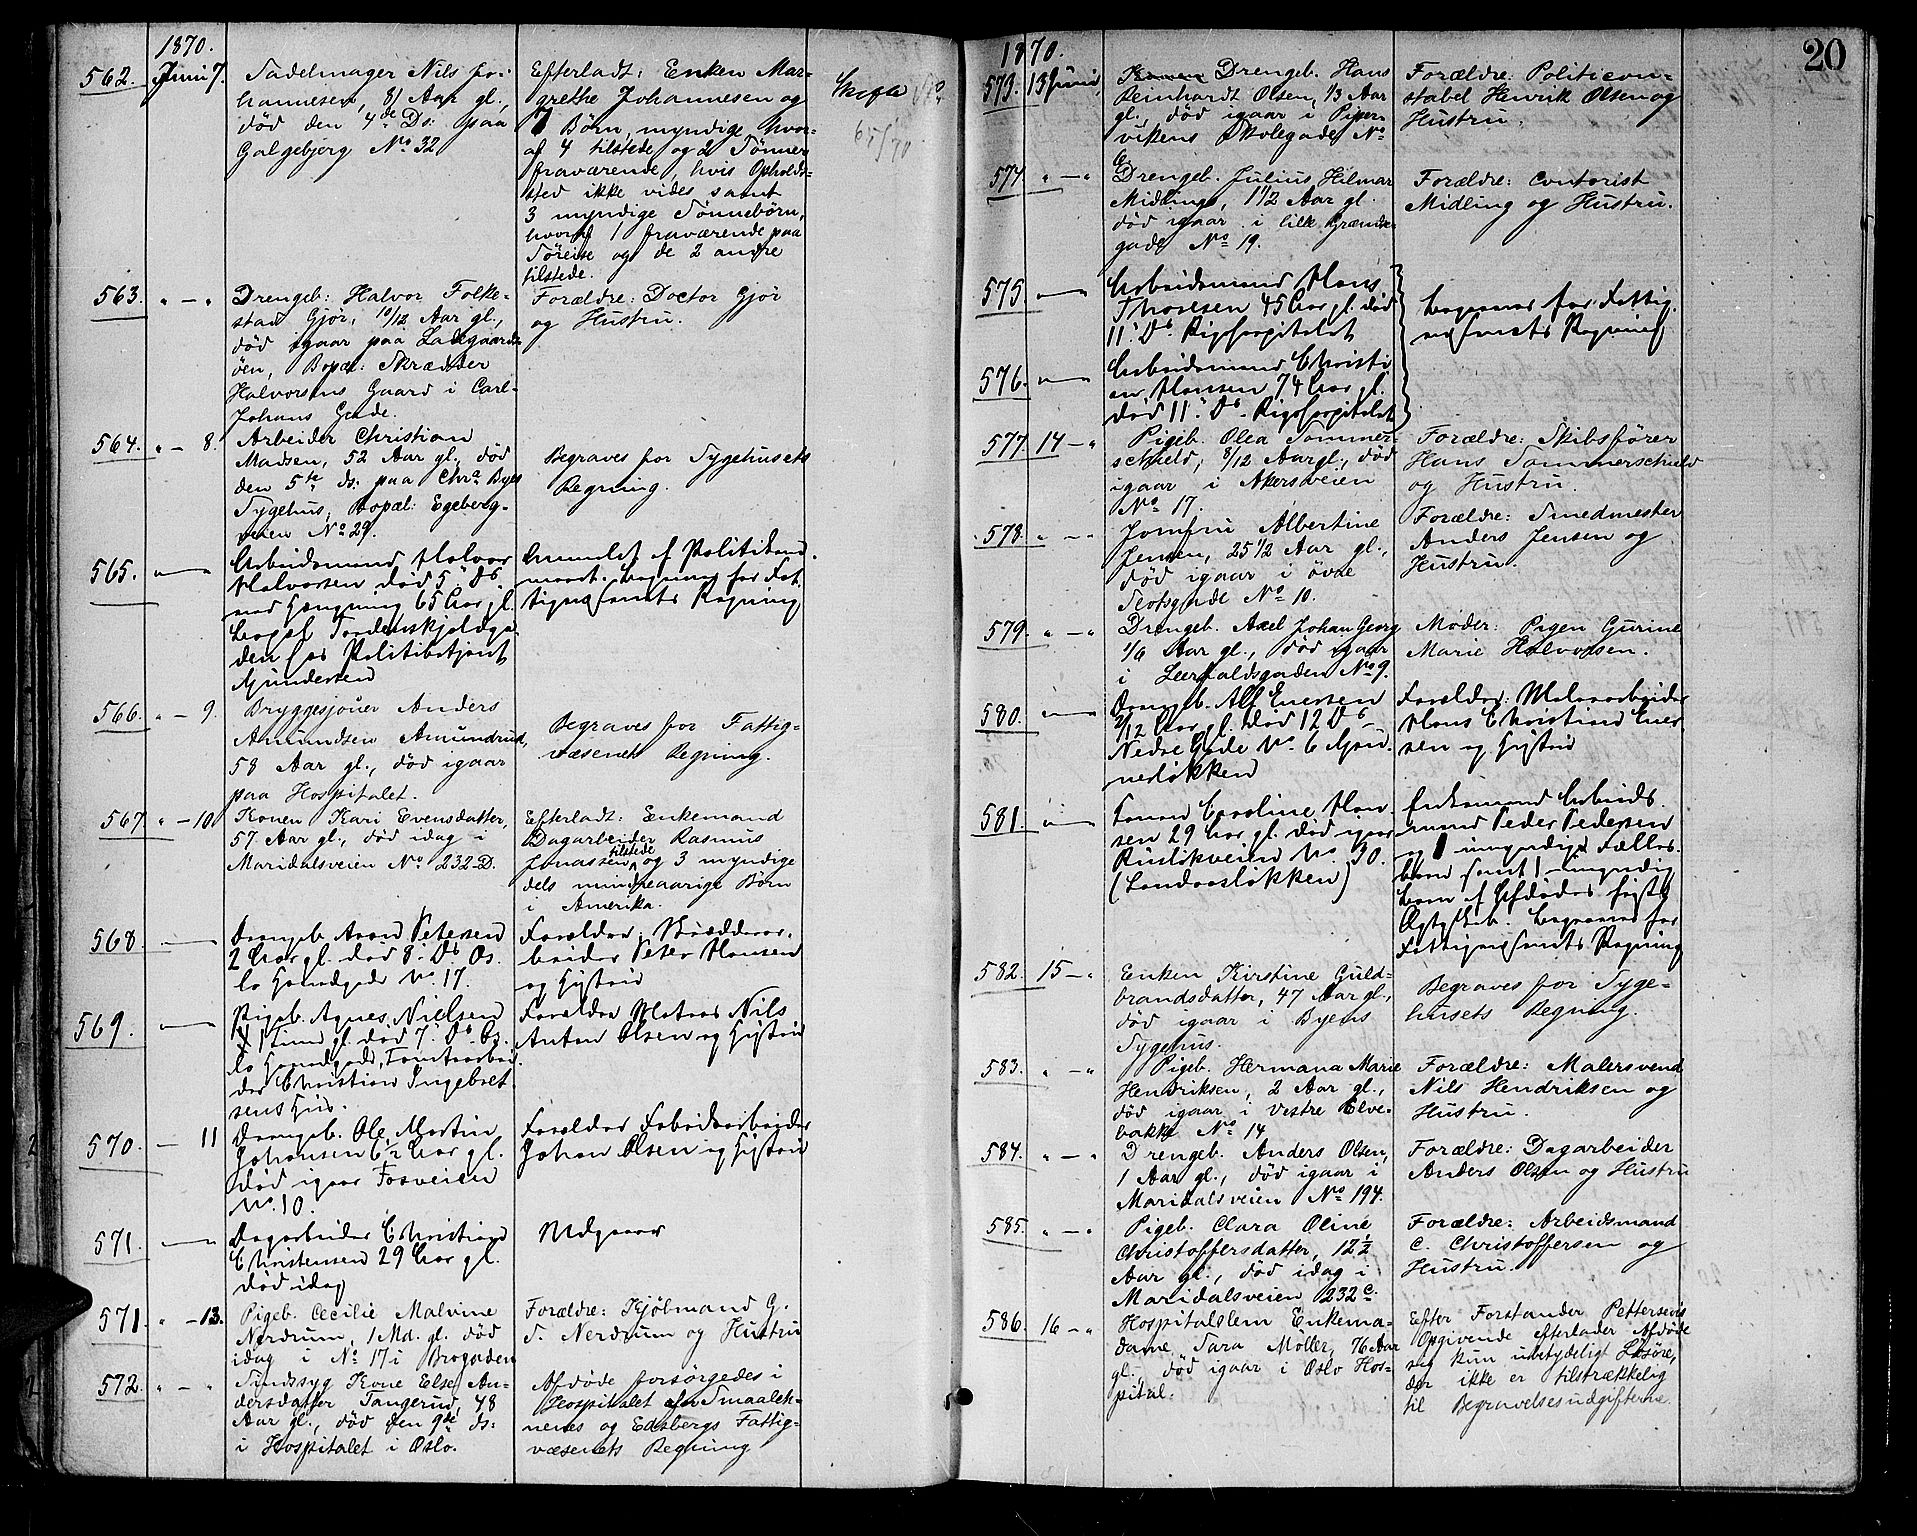 1870.
562. Juni 7. Sadelmager Nils Jo-
hannesen, 81 Aar gl.,
død den 4de Ds: paa
Galgebjerg No 32
Efterladt: Enken Mar-
grethe Johannesen og
7 Børn, myndige hvor-
af 4 tilstede og 2 Sønner
fraværende, hvis Opholds-
sted ikke vides samt
3 myndige Sønnebørn,
hvoraf 1 fraværende paa
Søreise og de 2 andre
tilstede.
Skifte
65/70
563. " — " Drengeb: Halvor Folke-
stad Gjør, 10/12 Aar gl.,
død igaar paa Ladegaards-
øen, Bopæl: Skrædder
Halvorsens Gaard i Carl-
Johans Gade.
Forældre: Doctor Gjør
og Hustru.
564. " — 8. Arbeider Christian
Madsen, 52 Aar gl., død
den 5te ds: paa Chra Byes
Sygehus, Bopæl: Egeberg-
veien No 29.
Begraves for Sygehusets
Regning.
565. — Arbeidsmand Halvor
Halvorsen død 5' Ds
ved Hængning 65 Aar gl.
Logs. Tordenskjoldsga-
den hos Politibetjent
Gundersen
Anmeldt af Politikam-
meret. Begraves for Fat-
tigvæsenets Regning
566. " — 9. Bryggesjouer Anders
Amundsen Amundrud,
58 Aar gl., død igaar
paa Hospitalet.
Begraves for Fattig-
væsenets Regning.
567 " — 10 Konen Kari Evensdatter,
57 Aar gl., død idag i
Maridalsveien No 232 D.
Efterladt: Enkemand
Dagarbeider Rasmus
Jonassen tilstede og 3 myndige
dels mindreaarige Børn
i Amerika.
568. — Drengeb. Aron Petersen
2 Aar gl. død 8' Ds Os-
lo Hovedgade No. 17.
Forældre: Skrædderar-
beider Peter Hansen
og Hustru
569. — Pigeb. Agnes Nielsen
1 Time gl. død 7' Ds Os-
lo Hovedgade, Tomtearbei-
der Christian Ingebret
sens Hus.
Forældre Matros Nils
Anton Olsen og Hustru
570. — 11 Drengeb. Ole Martin
Johansen 6½ Aar gl.
død igaar Fosveien
No. 10.
Forældre Fabrikarbeider
Johan Olsen og Hustru
571. — Dagarbeider Christian
Christensen 29 Aar gl.
død idag
Udgaar
571. " — 13. Pigeb. Cecilie Malvine
Nerdrum, 1 Md. gl. død
idag i No 17 i Brogaden
Forældre: Kjøbmand G.
S. Nerdrum og Hustru
572. " — " Sindssyg Kone Else An-
dersdatter Tangerud, 48
Aar gl., død den 9de ds:
i Hospitalet i Oslo.
Afdøde forsørgedes i
Hospitalet for Smaaleh-
nenes og Edsbergs Fattig-
væsenets Regning
20
1870.
573. 13 Juni Drengeb. Hans
Reinhardt Olsen, 1/3 Aar
gl., død igaar i Piper-
vikens Skolegade No
6
Forældre: Politicon-
stabel Henrik Olsen og
Hustru.
574 " — " Drengeb. Julius Hilmar
Midling, 1 1/2 Aar gl.
død igaar i lille Grændse-
gade No 19.
Forældre: Contorist
Midling og Hustru.
575. — Arbeidsmand Hans
Thoresen 45 Aar gl. død
11' Ds Rigshospitalet
576. — Arbeidsmand Christi
an Hansen 74 Aar gl.
død 11' Ds. Rigshospitalet
Begraves for Fattig-
væsenets Regning
577. 14 — " Pigeb. Olea Sommer-
schield, 8/12 Aar gl., død
igaar i Akersveien
No 17.
Forældre: Skibsfører
Hans Sommerschield
og Hustru.
578. " — " Jomfru Albertine
Jensen, 25 1/2 Aar gl.,
død igaar i øvre
Slotsgade No 10.
Forældre: Smedmester
Anders Jensen og
Hustru.
579. " — " Drengeb. Axel Johan Georg
1/6 Aar gl., død igaar
i Leerfaldsgaden No 9.
Moder: Pigen Gurine
Marie Halvorsen.
580. — Drengeb. Alf Enersen
2/12 Aar gl. død 12 Ds
Nedre Gade No. 6 Grü-
nerløkken
Forældre: Malerarbeider
Hans Christian Ener
sen og Hustru
581. — Konen Caroline Han-
sen 29 Aar gl. død igaar
Ruseløkveien No. 30.
Enkemand Arbeids-
mand Peder Pedersen
og 1 umyndigt Fælles-
barn samt 1 umyndig
Barn af Afdødes første
Ægteskab. Begraves for
Fattigvæsenets Regning
582. 15 — " Enken Kirstine Guld-
brandsdatter, 47 Aar gl.,
død igaar i Byens
Sygehus.
Begraves for Syge-
husets Regning.
583. " — " Pigeb. Hermana Marie
Hendriksen, 2 Aar gl.,
død igaar i Vestre Elve-
bakke No 14
Forældre: Malersvend
Nils Hendriksen og
Hustru.
584. " — " Drengeb. Anders Olsen,
1 Aar gl., død igaar i
Maridalsveien No 194.
Forældre: Dagarbeider
Anders Olsen og Hustru
585. " — " Pigeb. Clara Oline
Christoffersdatter, 12½
Aar gl., død idag i
Maridalsveien 232 C.
Forældre: Arbeidsmand
C. Christoffersen og
Hustru.
586. 16 — " Hospitalslem Enkema-
dame, Sara Møller, 76 Aar
gl., død igaar i Oslo Hos-
pital.
Efter Forstander Pettersens
Opgivende efterlader Afdøde
sig kun ubetydeligt Løsøre,
der ikke er tilstrækkelig
til Begravelsesudgifterne.